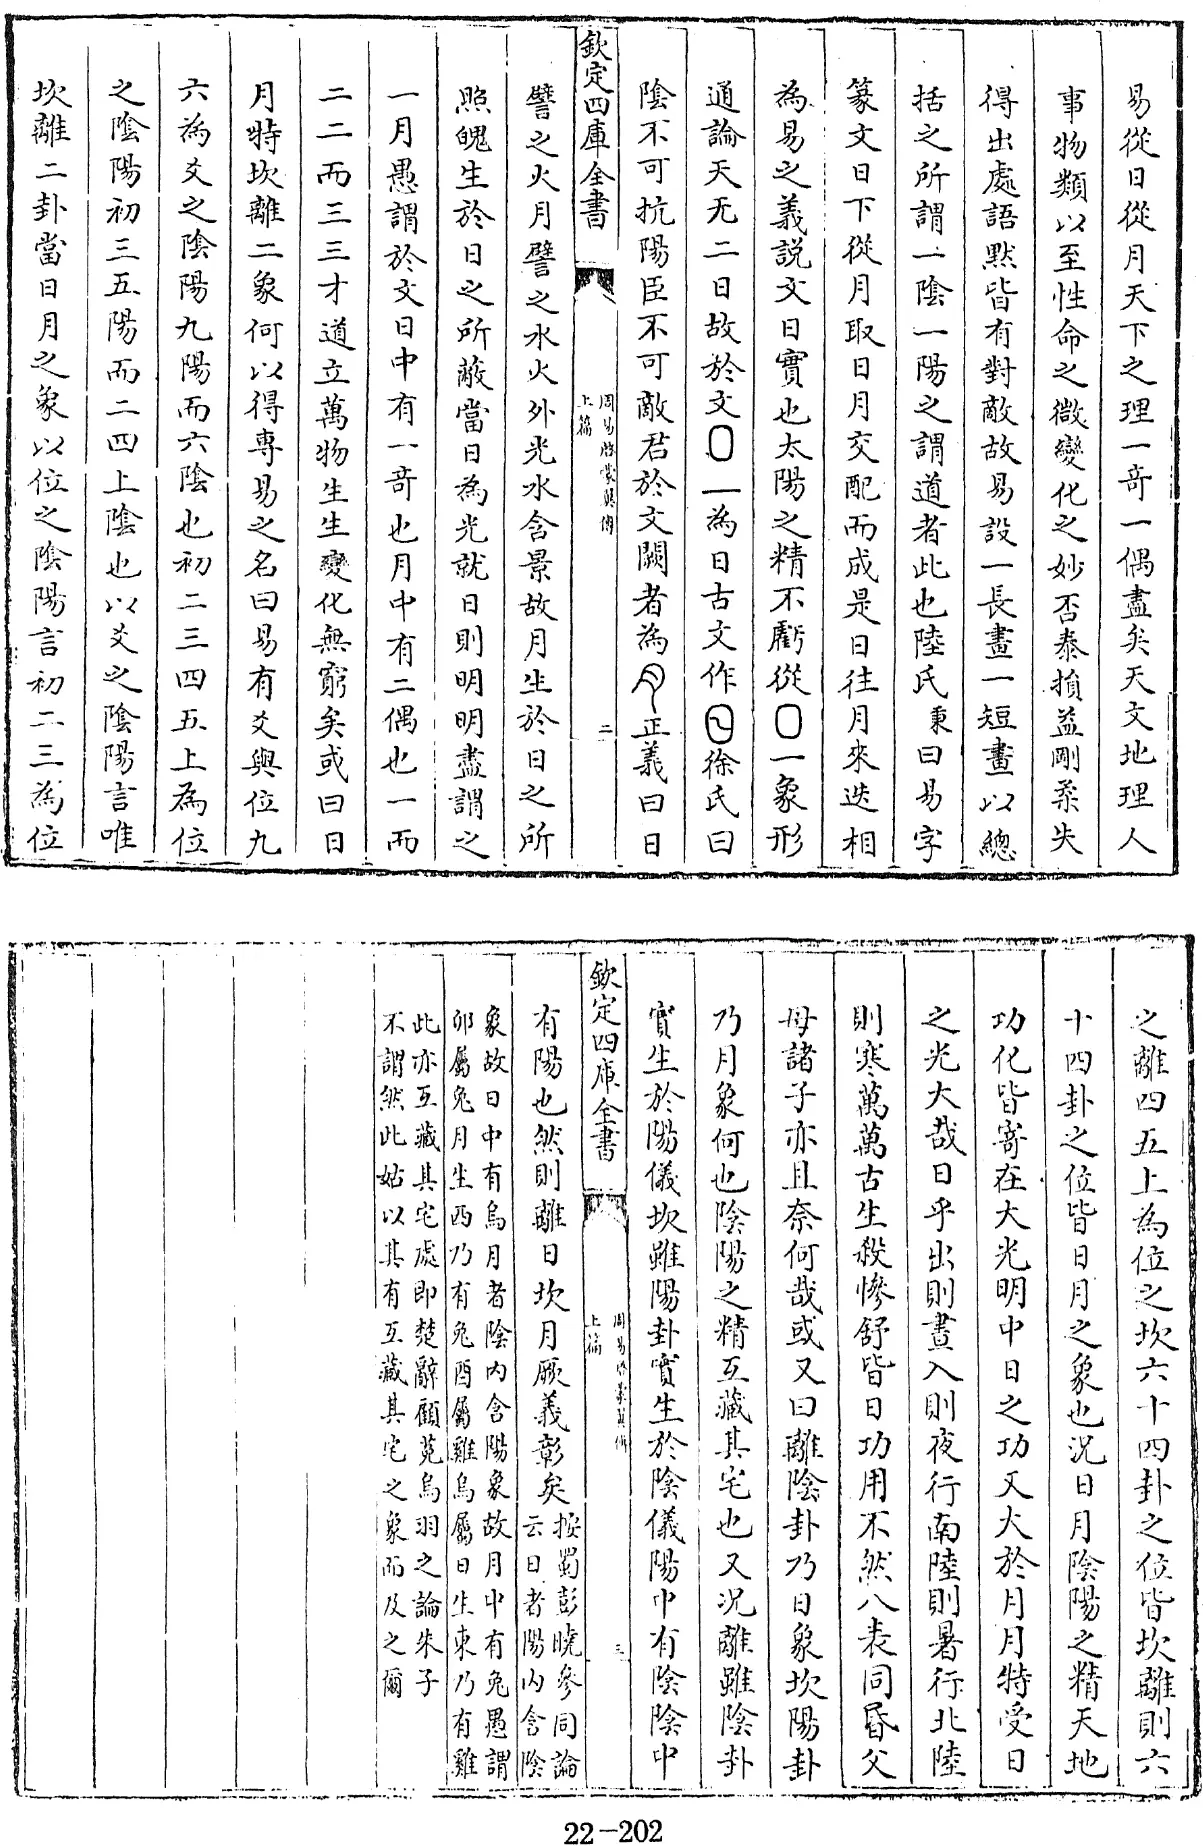 易從日從月天下之理一奇一偶盡矣天文地理人
事物類以至性命之微變化之妙否泰損益剛柔失
得出處語黙皆有對敵故易設一長畫一短畫以總
括之所謂一陰一陽之謂道者此也陸氏秉曰易字
篆文日下從月取日月交配而成是日往月來迭相
為易之義説文曰實也太陽之精不虧從〇一象形
通論天无二日故於文〇一為日古文作徐氏曰
陰不可抗陽臣不可敵君於文闕者為正義曰日
欽定四庫全書
周易啓蒙翼傳
上篇
二
譬之火月譬之水火外光水含景故月生於日之所
照魄生於日之所蔽當日為光就日則明明盡謂之
一月愚謂於文日中有一奇也月中有二偶也一而
二二而三三才道立萬物生生變化無窮矣或曰日
月特坎離二象何以得專易之名曰易有爻與位九
六為爻之陰陽九陽而六陰也初二三四五上為位
之陰陽初三五陽而二四上陰也以爻之陰陽言唯
坎離二卦當日月之象以位之陰陽言初二三為位
之離四五上為位之坎六十四卦之位皆坎離則六
十四卦之位皆日月之象也況日月陰陽之精天地
功化皆寄在大光明中日之功又大於月月特受日
之光大哉日乎出則晝入則夜行南陸則暑行北陸
則寒萬萬古生殺慘舒皆日功用不然八表同昏父
母諸子亦且奈何哉或又曰離陰卦乃日象坎陽卦
乃月象何也陰陽之精互藏其宅也又況離雖陰卦
實生於陽儀坎雖陽卦實生於陰儀陽中有陰陰中
欽定四庫全書
周易啓蒙翼傳
上篇
三
有陽也然則離日坎月厥義彰矣
按蜀彭曉參同論
云日者陽内含陰
象故日中有烏月者陰内含陽象故月中有兔愚謂
卯屬兔月生西乃有兔酉屬雞烏屬日生東乃有雞
此亦互藏其宅處即楚辭顧菟烏羽之論朱子
不謂然此姑以其有互藏其宅之象而及之爾
22-202